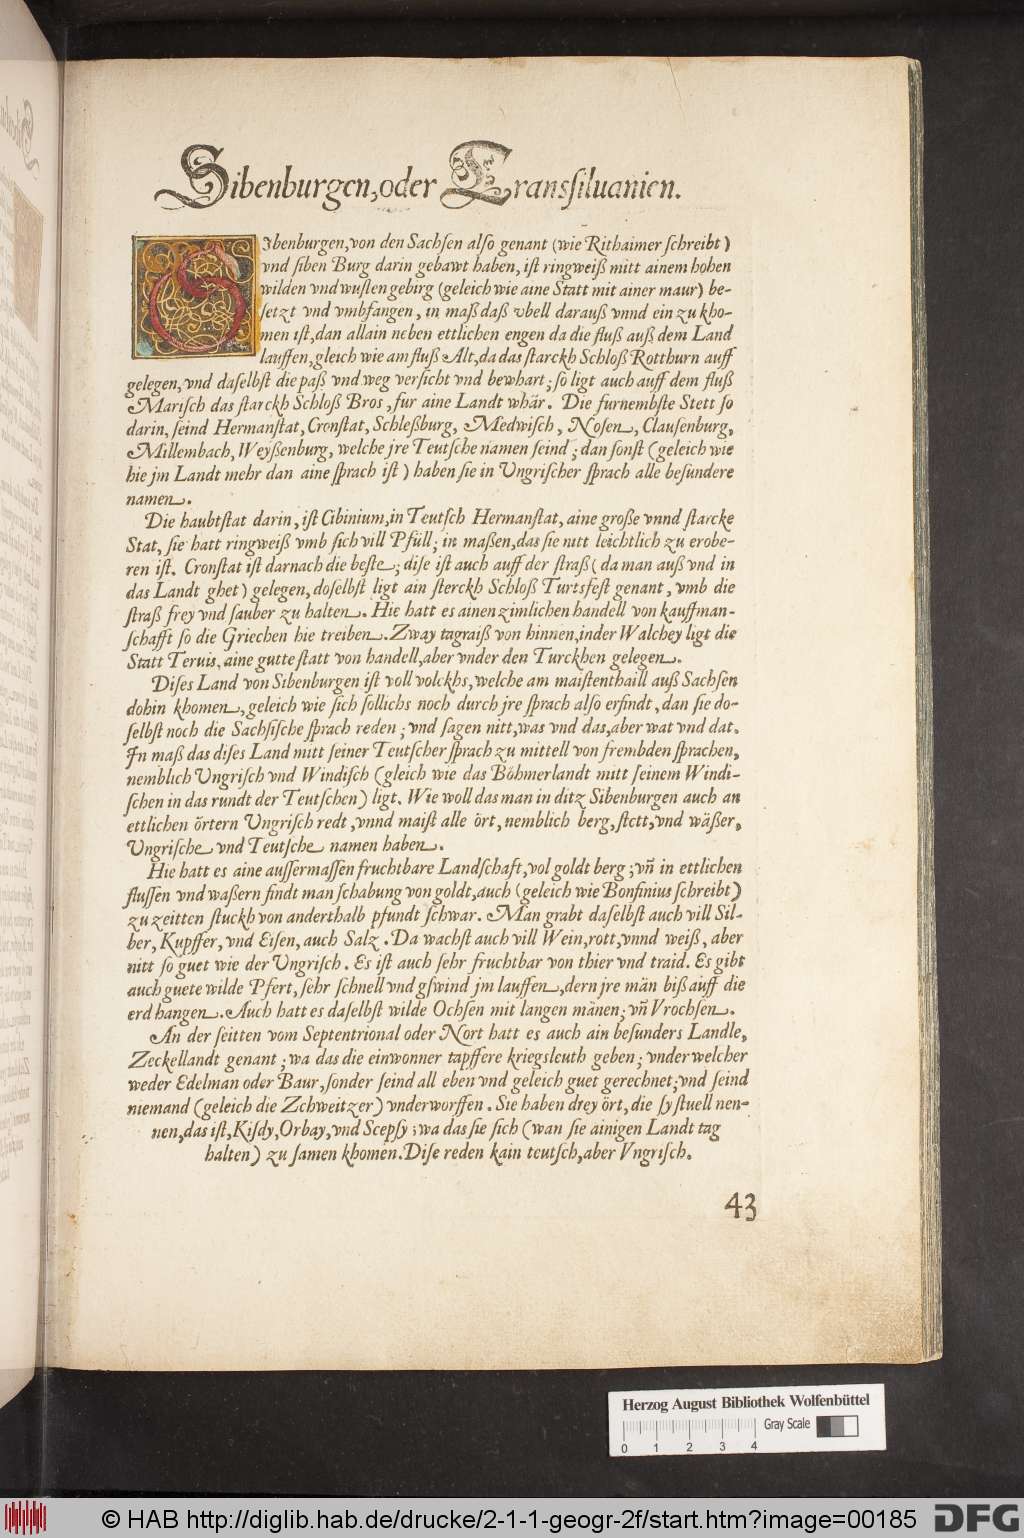 Sibenburgen, oder Transsiluanien.
SIbenburgen, von den Sachsen also genant (wie Rithaimer schreibt)
vnd siben Burg darin gebawt haben, ist ringweiß mitt ainem hohen
wilden vnd wusten gebirg (geleich wie aine Statt mit ainer maur) be-
setzt vnd vmbfangen, in maß daß vbell darauß vnnd ein zu kho-
men ist, dan allain neben ettlichen engen da die fluß auß dem Land
lauffen, gleich wie am fluß Alt, da das starckh Schloß Rotthurn auff
gelegen, vnd daselbst die paß vnd weg versicht vnd bewhart; so ligt auch auff dem fluß
Marisch das starckh Schloß Bros, fur aine Landt whär. Die furnembste Stett so
darin, seind Hermanstat, Cronstat, Schleßburg, Medwisch, Nosen, Clausenburg,
Millembach, Weyßenburg, welche jre Teutsche namen seind; dan sonst (geleich wie
hie jm Landt mehr dan aine sprach ist) haben sie in Vngrischer sprach alle besundere
namen.
Die haubtstat darin, ist Cibinium, in Teutsch Hermanstat, aine große vnnd starcke
Stat, sie hatt ringweiß vmb sich vill Pfüll; in maßen, das sie nitt leichtlich zu erobe-
ren ist. Cronstat ist darnach die beste; dise ist auch auff der straß (da man auß vnd in
das Landt ghet) gelegen, doselbst ligt ain sterckh Schloß Turtsfest genant, vmb die
straß frey vnd sauber zu halten. Hie hatt es ainen zimlichen handell von kauffman-
schafft so die Griechen hie treiben. Zway tagraiß von hinnen, in der Walchey ligt die
Statt Teruis, aine gutte statt von handell, aber vnder den Turckhen gelegen.
Dises Land von Sibenburgen ist voll volckhs, welche am maistenthaill auß Sachsen
dohin khomen, geleich wie sich sollichs noch durch jre sprach also erfindt, dan sie do-
selbst noch die Sachsische sprach reden; vnd sagen nitt, was vnd das, aber wat vnd dat.
In maß das dises Land mitt seiner Teutscher sprach zu mittell von frembden sprachen,
nemblich Vngrisch vnd Windisch (gleich wie das Böhmerlandt mitt seinem Windi-
schen in das rundt der Teutschen) ligt. Wie woll das man in ditz Sibenburgen auch an
ettlichen örtern Vngrisch redt, vnnd maist alle ört, nemblich berg, stett, vnd wäßer,
Vngrische vnd Teutsche namen haben.
Hie hatt es aine aussermassen fruchtbare Landschaft, vol goldt berg; vñ in ettlichen
flussen vnd waßern findt man schabung von goldt, auch (geleich wie Bonfinius schreibt)
zu zeitten stuckh von anderthalb pfundt schwar. Man grabt daselbst auch vill Sil-
ber, Kupffer, vnd Eisen, auch Salz. Da wachst auch vill Wein, rott, vnnd weiß, aber
nitt so guet wie der Vngrisch. Es ist auch sehr fruchtbar von thier vnd traid. Es gibt
auch guete wilde Pfert, sehr schnell vnd gswind jm lauffen, dern jre män biß auff die
erd hangen. Auch hatt es daselbst wilde Ochsen mit langen mänen; vñ Vrochsen.
An der seitten vom Septentrional oder Nort hatt es auch ain besunders Landle,
Zeckellandt genant; wa das die einwonner tapffere kriegsleuth geben; vnder welcher
weder Edelman oder Baur, sonder seind all eben vnd geleich guet gerechnet; vnd seind
niemand (geleich die Zchweitzer) vnderworffen. Sie haben drey ört, die sy stuell nen-
nen, das ist, Kisdy, Orbay, vnd Scepsy; wa das sie sich (wan sie ainigen Landt tag
halten) zu samen khomen. Dise reden kain teutsch, aber Vngrisch.
43
Herzog August Bibliothek Wolfenbüttel
Gray Scale
0 1 2 3 4
© HAB http://diglib.hab.de/drucke/2-1-1-geogr-2f/start.htm?image=00185
DFG